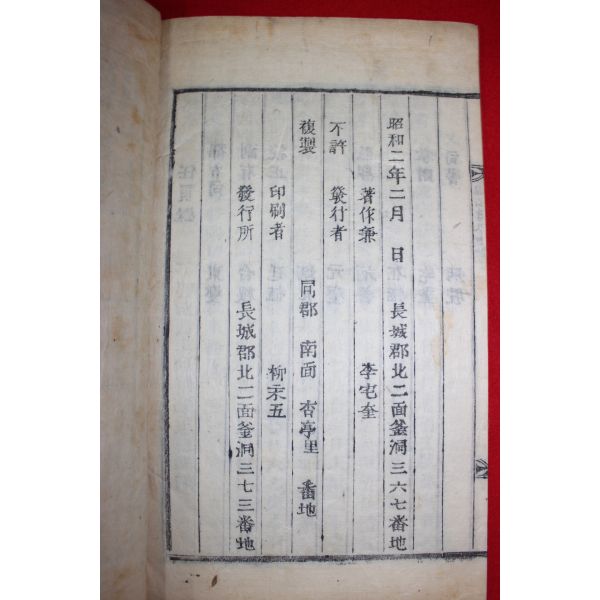 昭和二年二月　日　長城郡北二面釜洞三六七番地
著作兼　李宅奎
不許　發行者
複製　同郡　南面　杏亭里　番地
印刷者　柳 五
發行所　長城郡北二面釜洞三七三番地